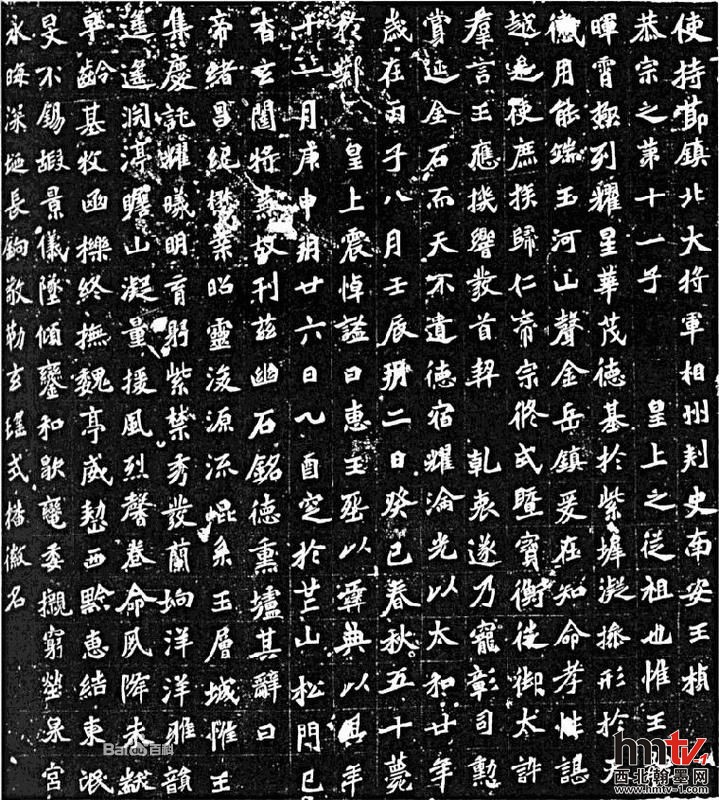 使持節鎮北大將軍相州刺史南安王楨
恭宗之第十一子 皇上之從祖也惟王
暉霄極列耀星華茂德基於紫墀凝操形於天
儀用能端玉河山聲金岳鎮爰在知命孝性諶
越是使庶族歸仁帝宗攸式暨寶衡徙御太訏
羣言王應機響發首契 乾衷遂乃寵彰司勳
賞延金石而天不遺德宿耀淪光以太和廿年
歲在丙子八月壬辰朔二日癸巳春秋五十薨
於鄴 皇上震悼諡曰惠王葬以彝典以其年
十一月庚申朔廿六日乙酉窆於芒山松門已
杳玄闥將蕪故刊茲幽石銘德熏壚其辭曰
帝緒昌紀懋業昭靈浚源流崐系玉層城惟王
集慶託耀曦明育躬紫禁秀發蘭坰洋洋雅韻
遙遙淵渟瞻山凝量援風烈馨卷命夙降未黻
早齡基牧函櫟終撫魏亭威整西黔惠結東氓
旻不錫嘏景儀墜傾鑾和歇轡委櫬窮塋泉宮
永晦深埏長鉤敬勒玄瑤式播徽名
Baidu百科
hmtv-1
西北翰墨网
www.hmtv-1.com